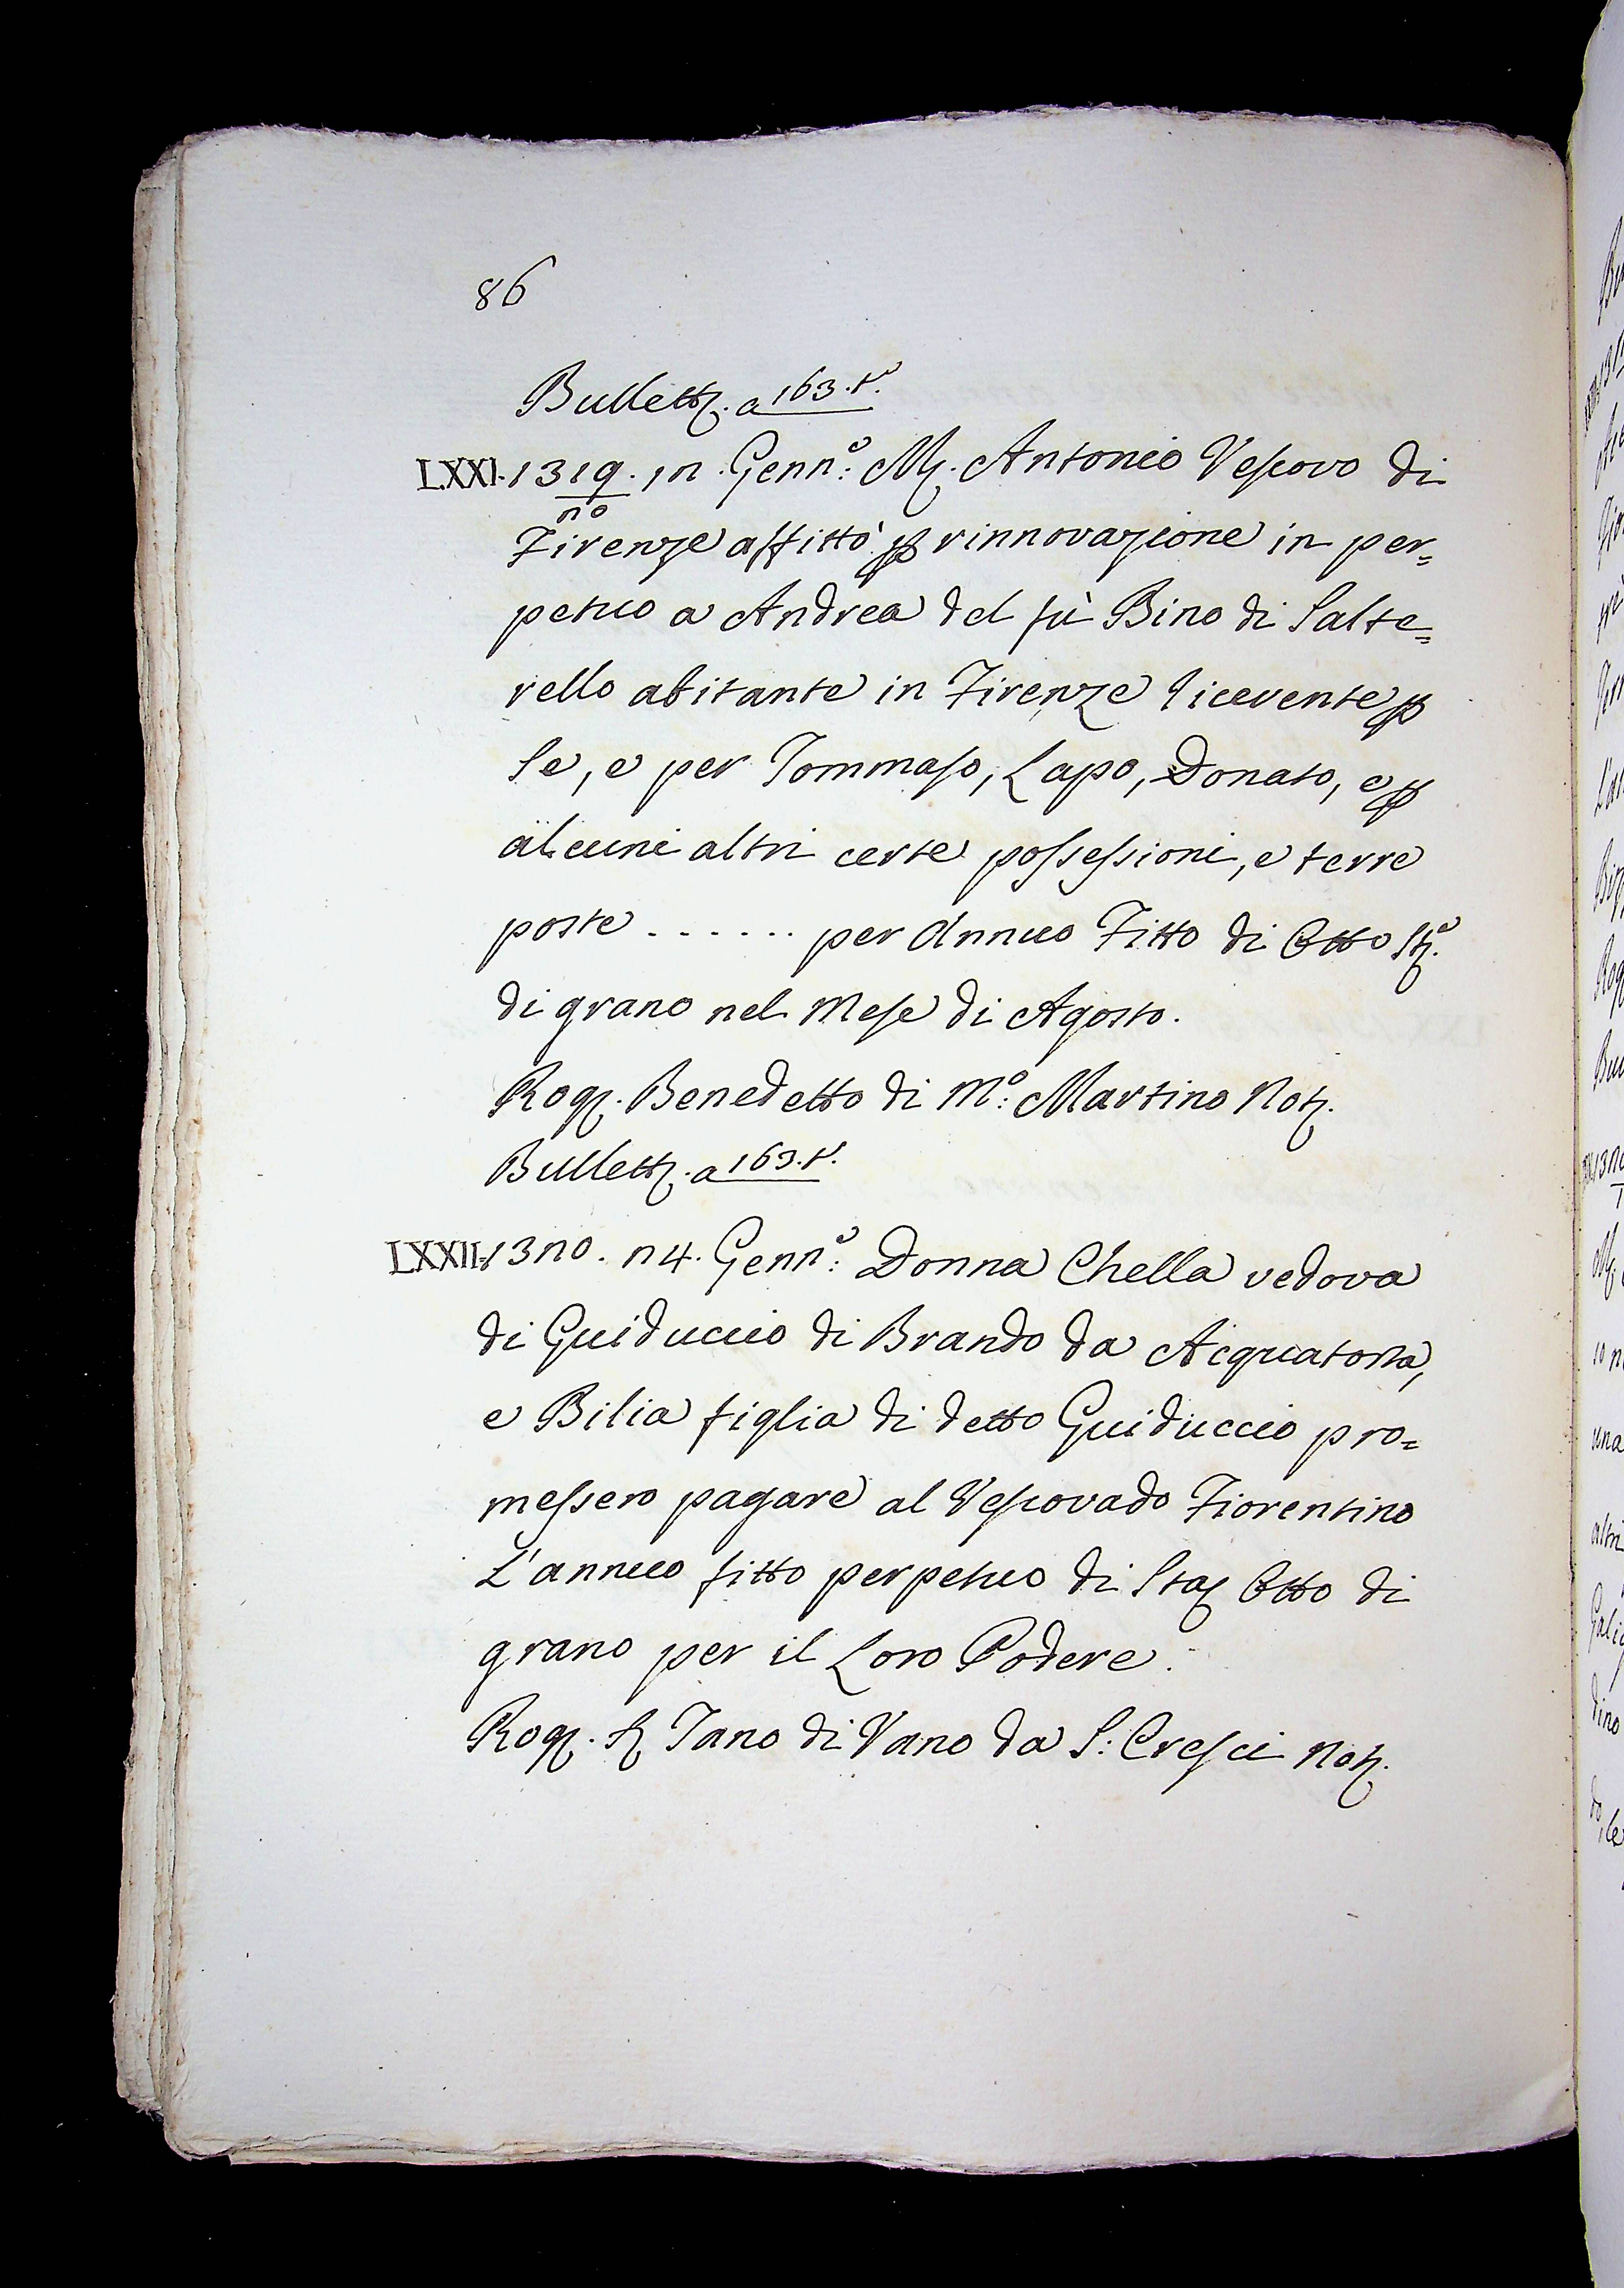 86
Bullettz. a 163. t.º
LXXI. 1319. 12. Genn.º M. Antonio Vescovo di
20
Firenze affittò p rinnovazione in per=
petuo a Andrea del fù Bino di Salte=
rello abitante in Firenze ricevente p
se, e per Tommaso, Lapo, Donato, e p
alcuni altri certe possessioni, e terre
poste . . . . . . per Annuo Fitto di Otto St.ª
di grano nel Mese di Agosto.
Rog. Benedetto di M.º Martino Not.
Bullett. a 163. t.
LXXII. 1320. 24. Genn.º Donna Chella vedova
di Guiduccio di Brando da Acquatorta,
e Bilia figlia di detto Guiduccio pro=
messero pagare al Vescovado Fiorentino
L'annuo fitto perpetuo di Sta Otto di
grano per il Loro Podere.
Rog. S. Tano di Vano da S: Cresci Not.